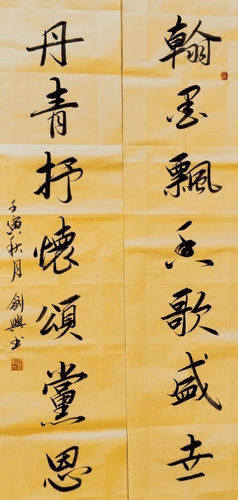 翰墨飄香歌盛世
丹青抒懷頌黨恩
壬寅秋月 創興书